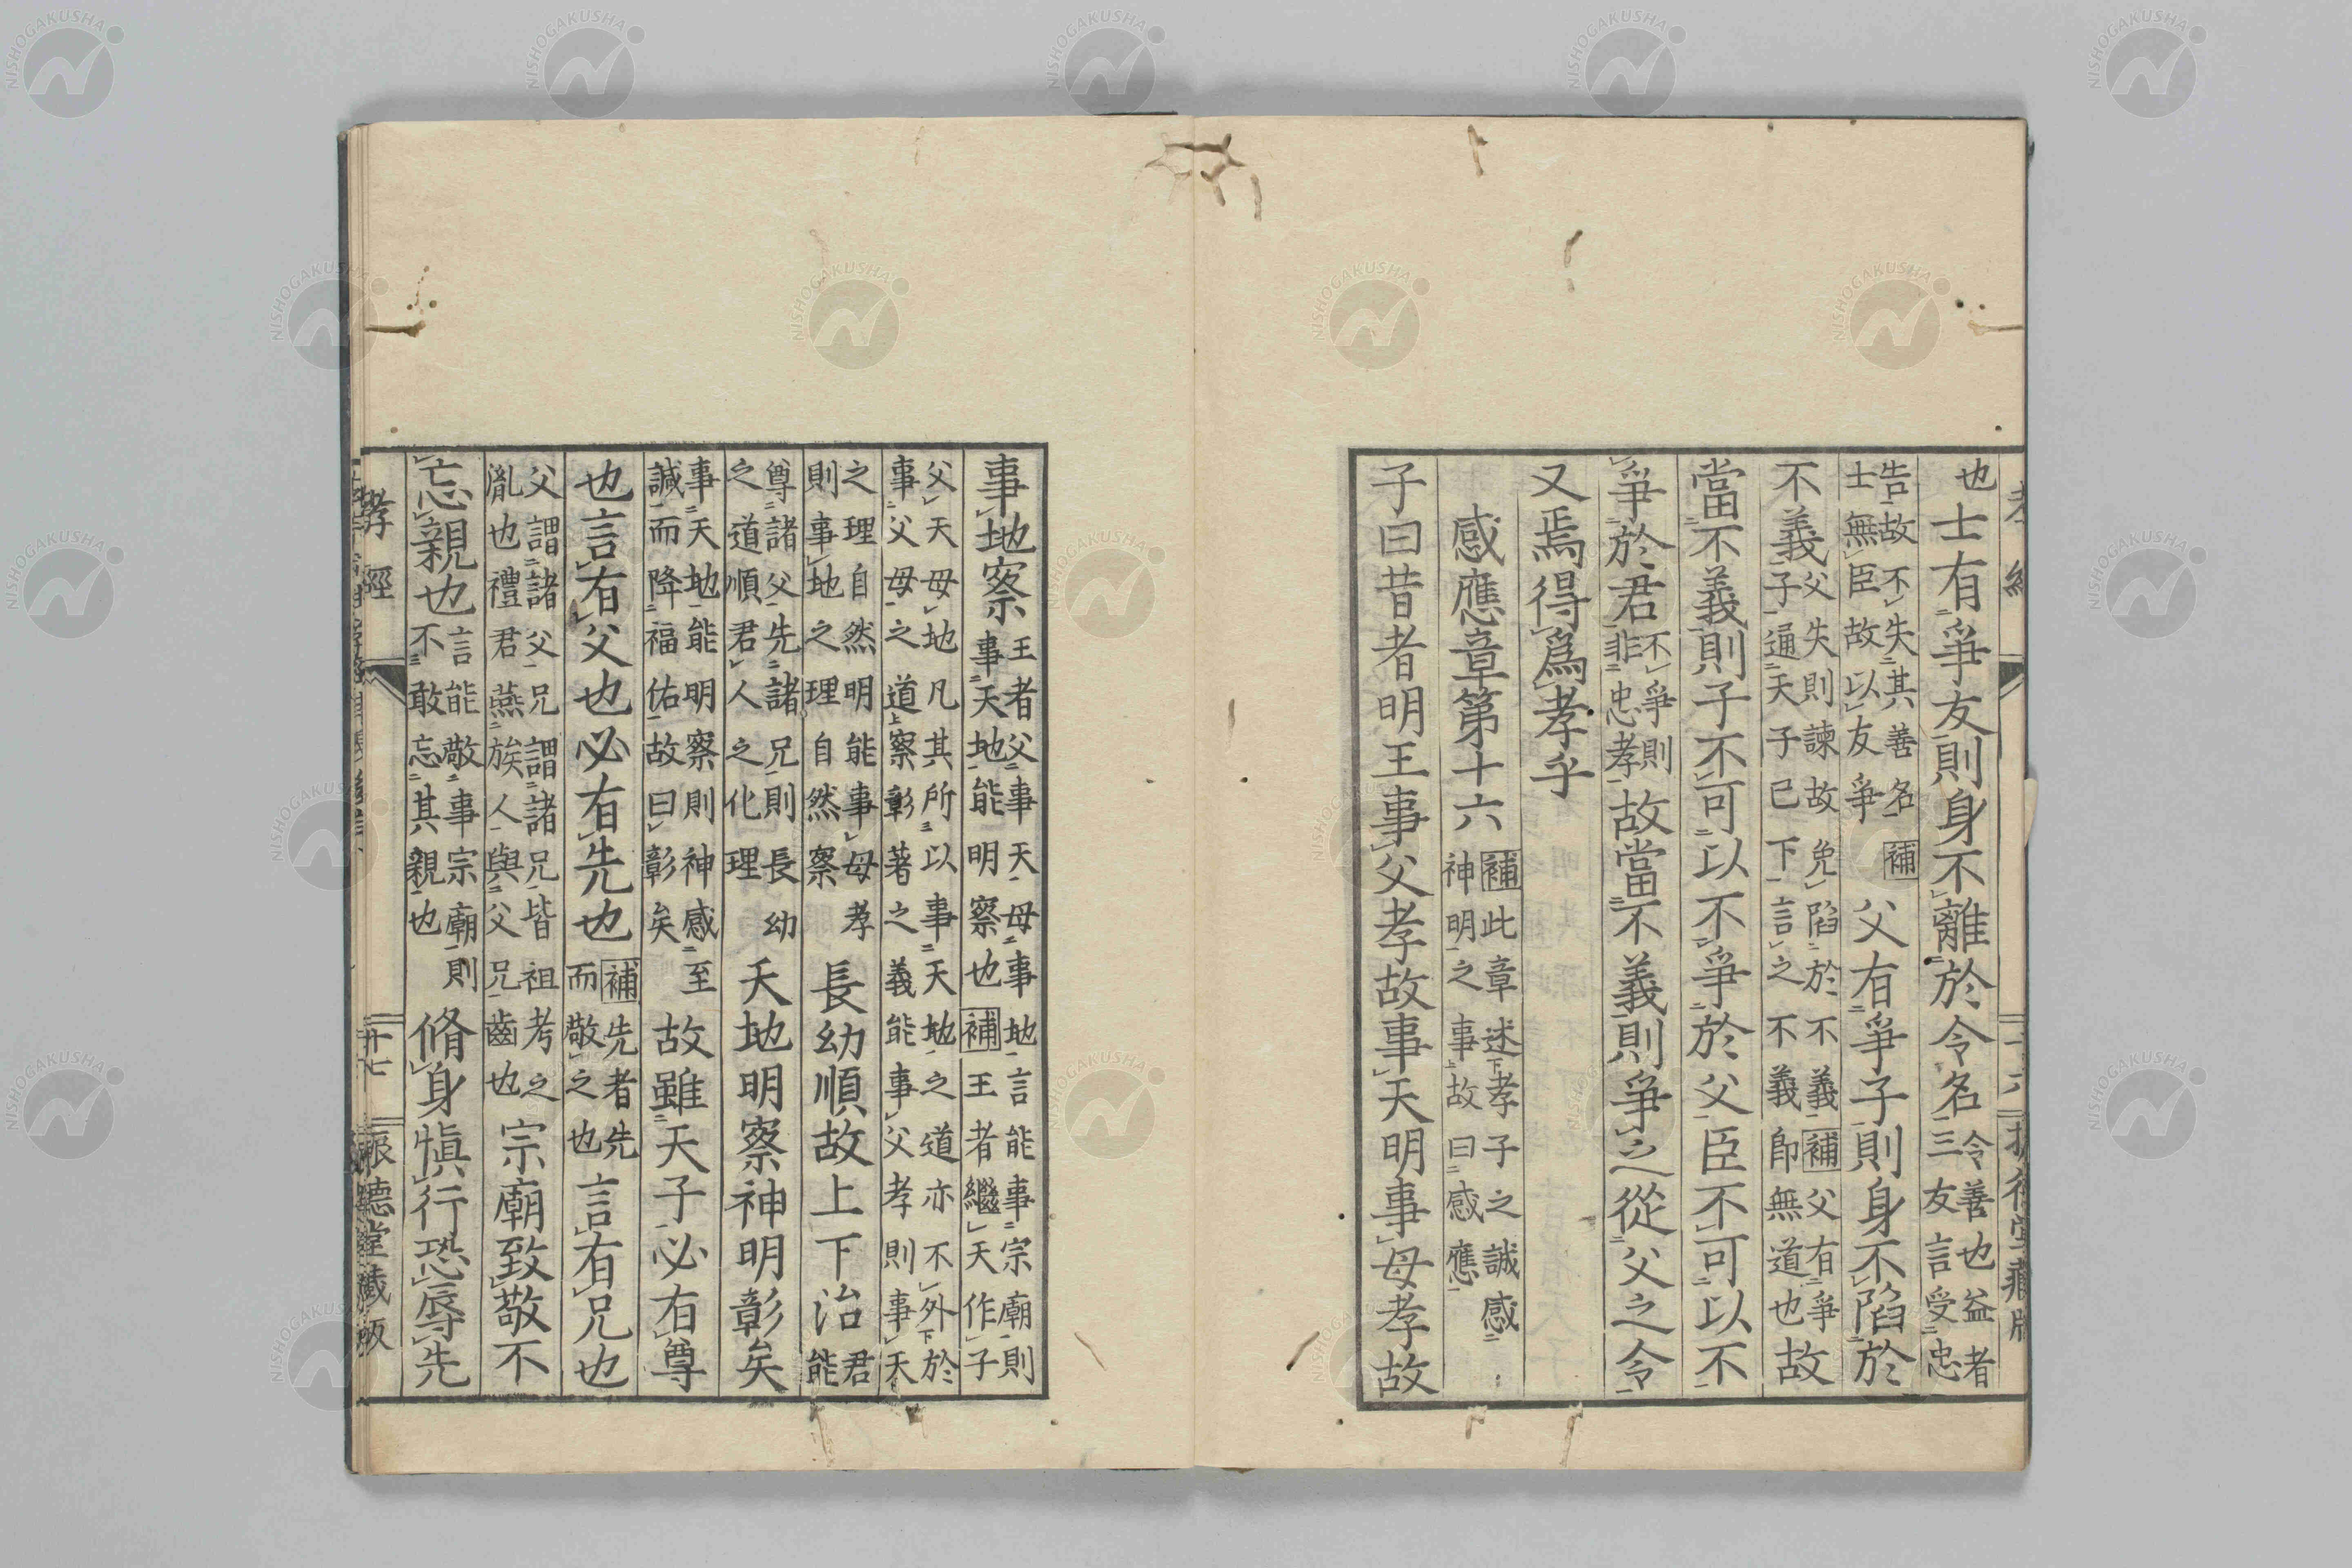 也士有爭友則身不離於令名令善也益者三友言受忠
告故不失其善名補士無臣故以友爭父有爭子則身不陷於
不義父失則諫故免陷於不義補父有爭子通天子已下言之不義卽無道也故
當不義則子不可以不爭於父臣不可以不
爭於君不爭則非忠孝故當不義則爭之從父之令
又焉得爲孝乎
感應章第十六補此章述孝子之誠感神明之事故曰感應
子曰昔者明王事父孝故事天明事母孝故
事地察王者父事天母事地言能事宗廟則事天地能明察也補王者繼天作子
父天母地凡其所以事天地之道亦不外於事父母之道上察彰著之義能事父孝則事天
之理自然明能事母孝則事地之理自然察長幼順故上下治君能
尊諸父先諸兄則長幼之道順君人之化理天地明察神明彰矣
事天地能明察則神感至諴而降福佑故曰彰矣故雖天子必有尊
也言有父也必有先也補先者先而敬之也言有兄也
父謂諸父兄謂諸兄皆祖考之胤也禮君燕族人與父兄齒也宗廟致敬不
忘親也言能敬事宗廟則不敢忘其親也脩身愼行恐辱先
孝經
廿七
德堂藏版
NISHOGAKUSHA